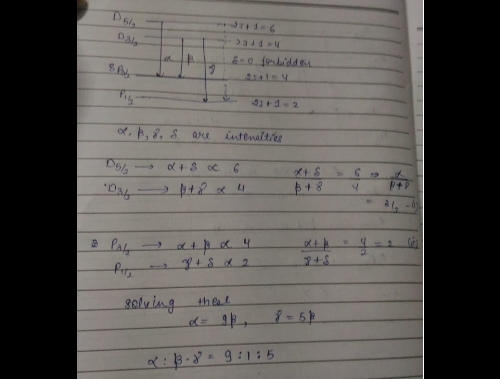 D5/2 2J+1=6
D3/2 2J+1=4
α β γ δ=0 forbidden
P3/2 2J+1=4
P1/2 2J+1=2
α, β, γ, δ are intensities
D5/2 → α+δ ∝ 6 α+δ/β+γ = 6/4 ⇒ α/β+γ
D3/2 → β+γ ∝ 4 = 3/2 -(i)
2 P3/2 → α+β ∝ 4 α+β/γ+δ = 4/2 = 2 (ii)
P1/2 → γ+δ ∝ 2
solving these
α = 9β, γ = 5β
α : β : γ = 9 : 1 : 5